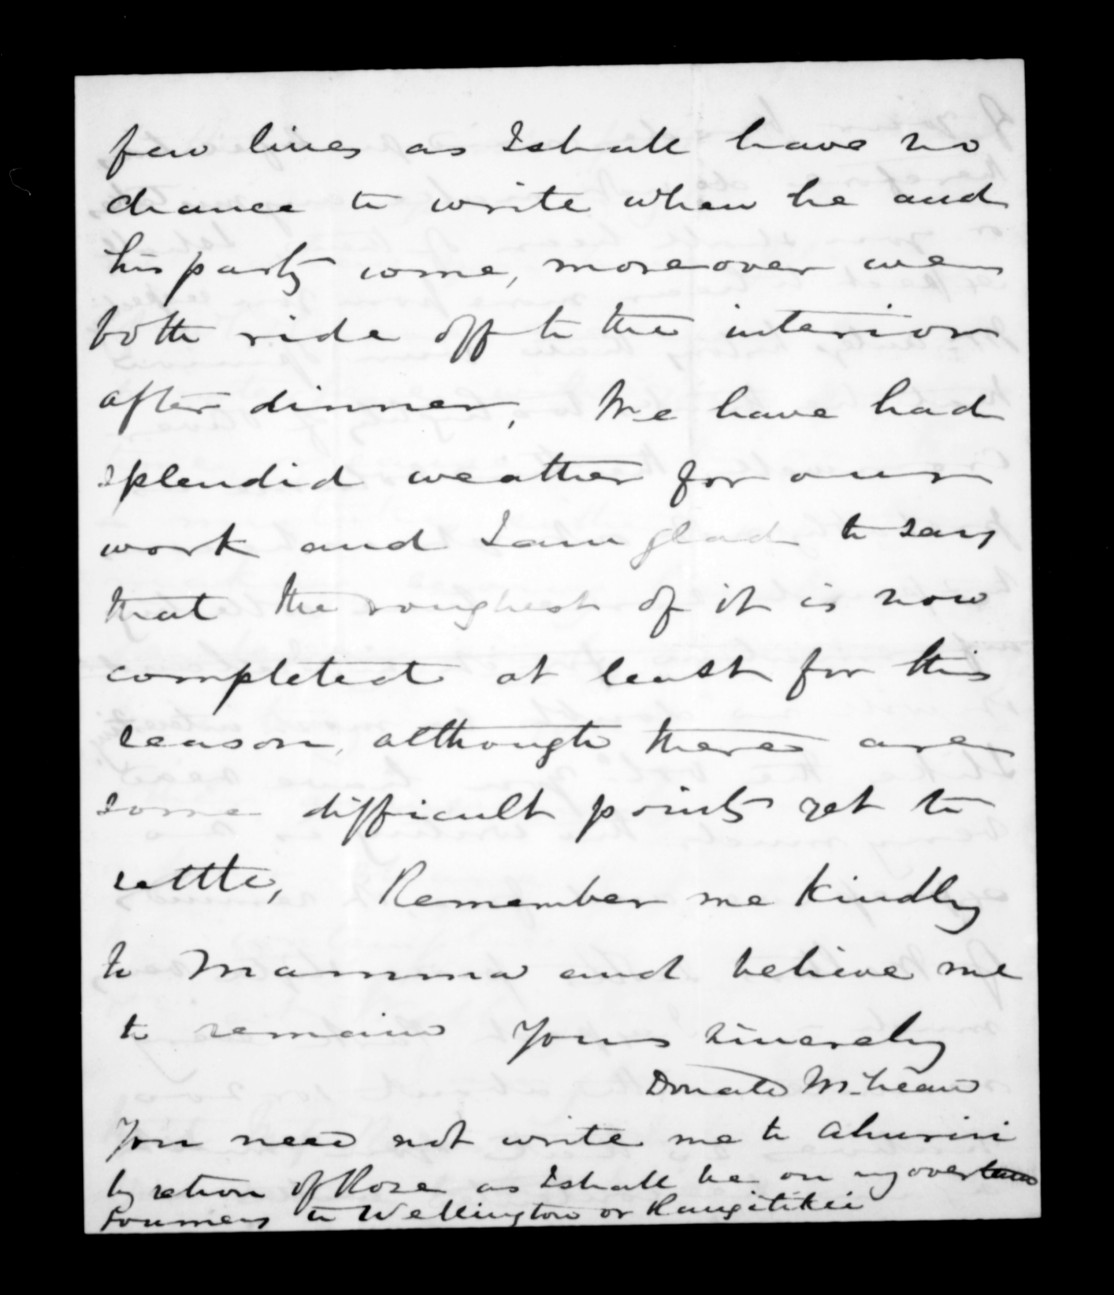 few lines as I shall have no
chance to write when he and
his party come, moreover we
both ride off to the interior
after dinner, We have had
splendid weather for our
work and I am glad to say
that the roughest of it is now
completed at least for this
season, although there are
some difficult points yet to
settle, Remember me kindly
to Mamma and believe me
to remain Yours sincerely
Donald McLean
You need not write me to Ahuriri
by return of Rose as I shall be on my over
Journey to Wellington or Rangitikei